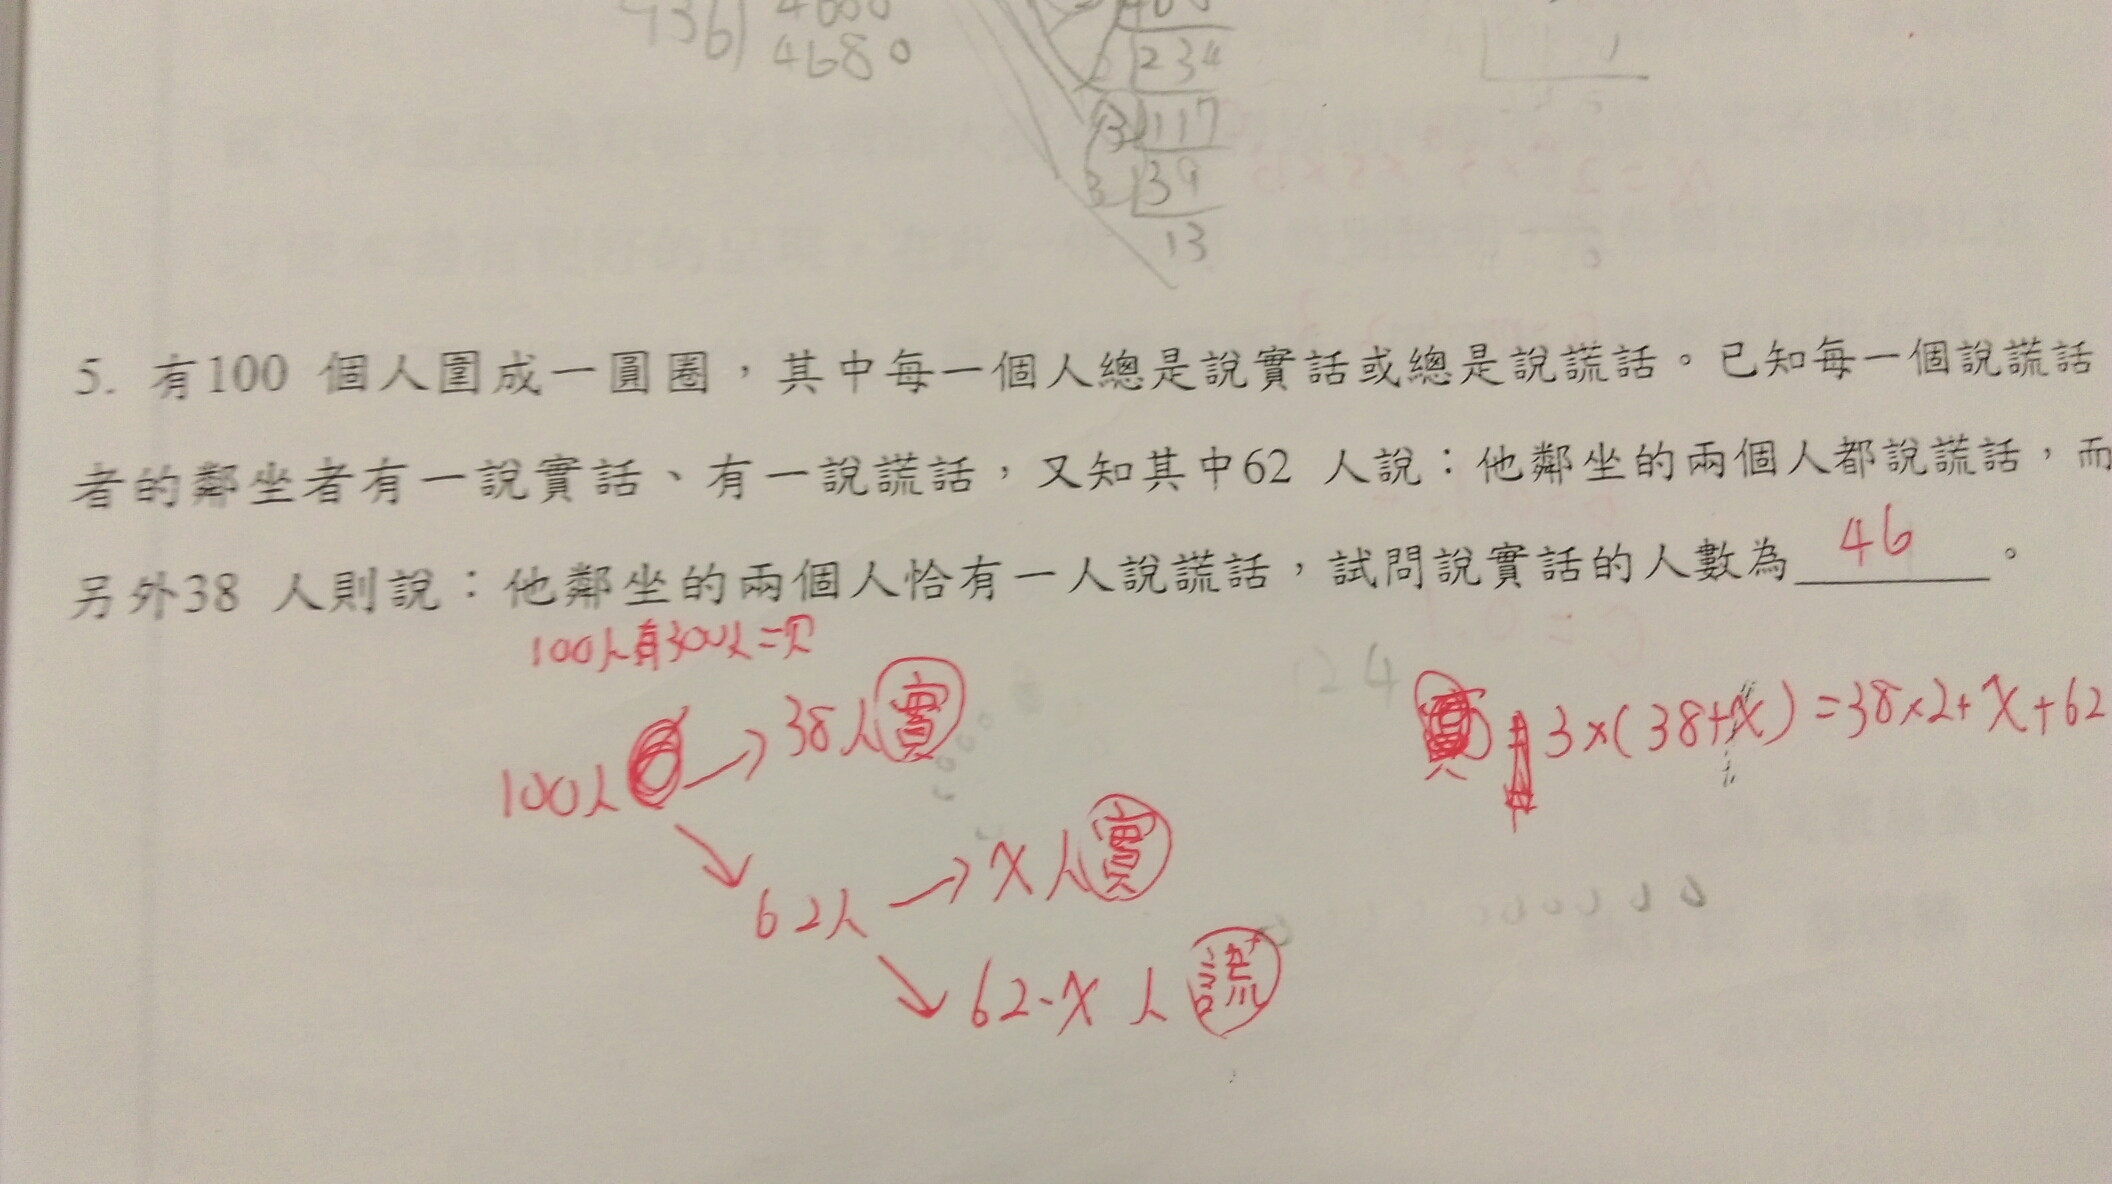 936) 4680
4680
234
3 117
3 39
13
5. 有100 個人圍成一圓圈，其中每一個人總是說實話或總是說謊話。已知每一個說謊話
者的鄰坐者有一說實話、有一說謊話，又知其中62 人說：他鄰坐的兩個人都說謊話，而
另外38 人則說：他鄰坐的兩個人恰有一人說謊話，試問說實話的人數為 46 。
100人有300人=次
124
38人實
3×(38+x)=38×2+x+62
100人
x人實
62人
62-x 人 謊